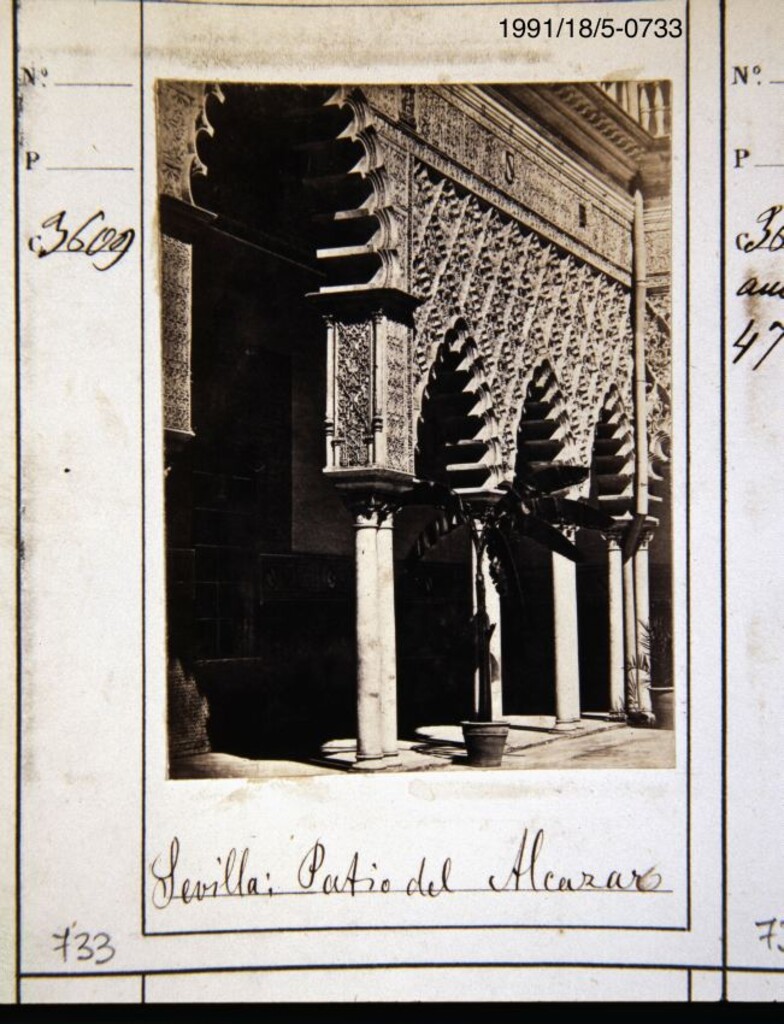 1991/18/5-0733
Nº.
P
C. 3609
Sevilla: Patio del Alcazar
733
Nº.
P
C. 36
47